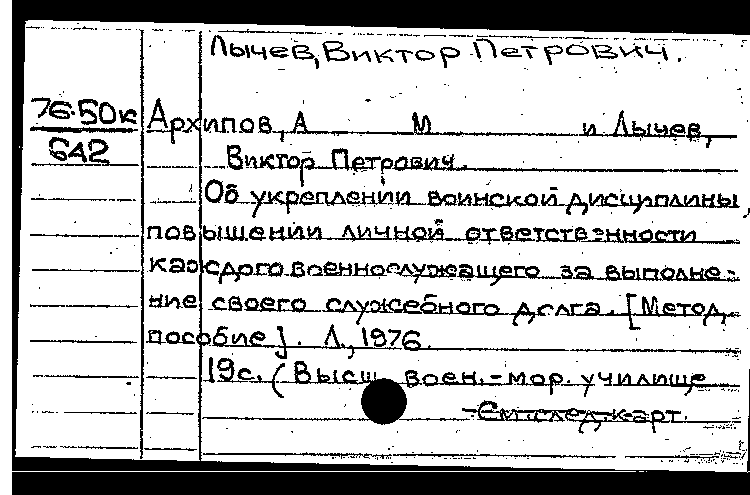 Лычев, Виктор Петрович.
76-50к
642
Архипов, А М и Лычев,
Виктор Петрович.
Об укреплении воинской дисциплины,
повышении личной ответственности
каждого военнослужащего за выполне-
ние своего служебного долга. [Метод.
пособие]. Л., 1976.
19с. (Высш. воен.-мор. училище
См. след. карт.